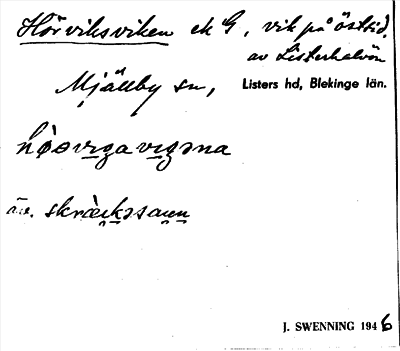 Hörviksviken ek G, vik på östsid.
av Listerhalvön
Mjällby sn, Listers hd, Blekinge län.
hø̀ərvi̱gavi̱gəna
äv. skræ̀i̱ḵəsau̱ṉ
J. SWENNING 1946